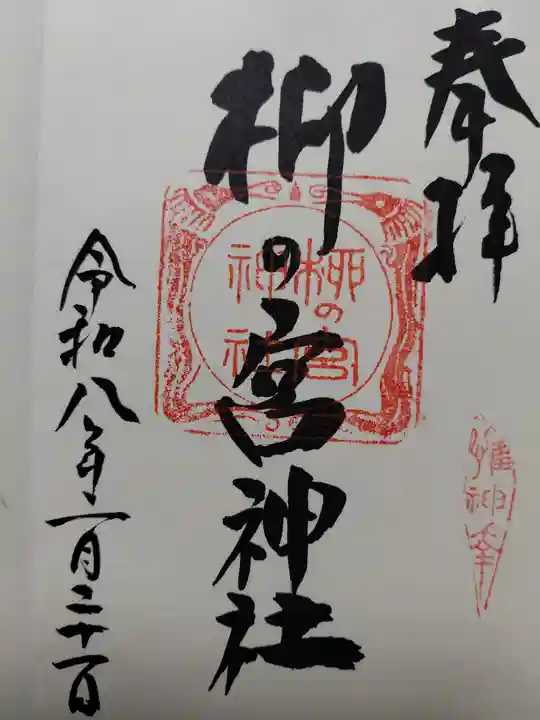 奉拝
柳の宮神社
柳の宮
神社
令和八年一月二十一日